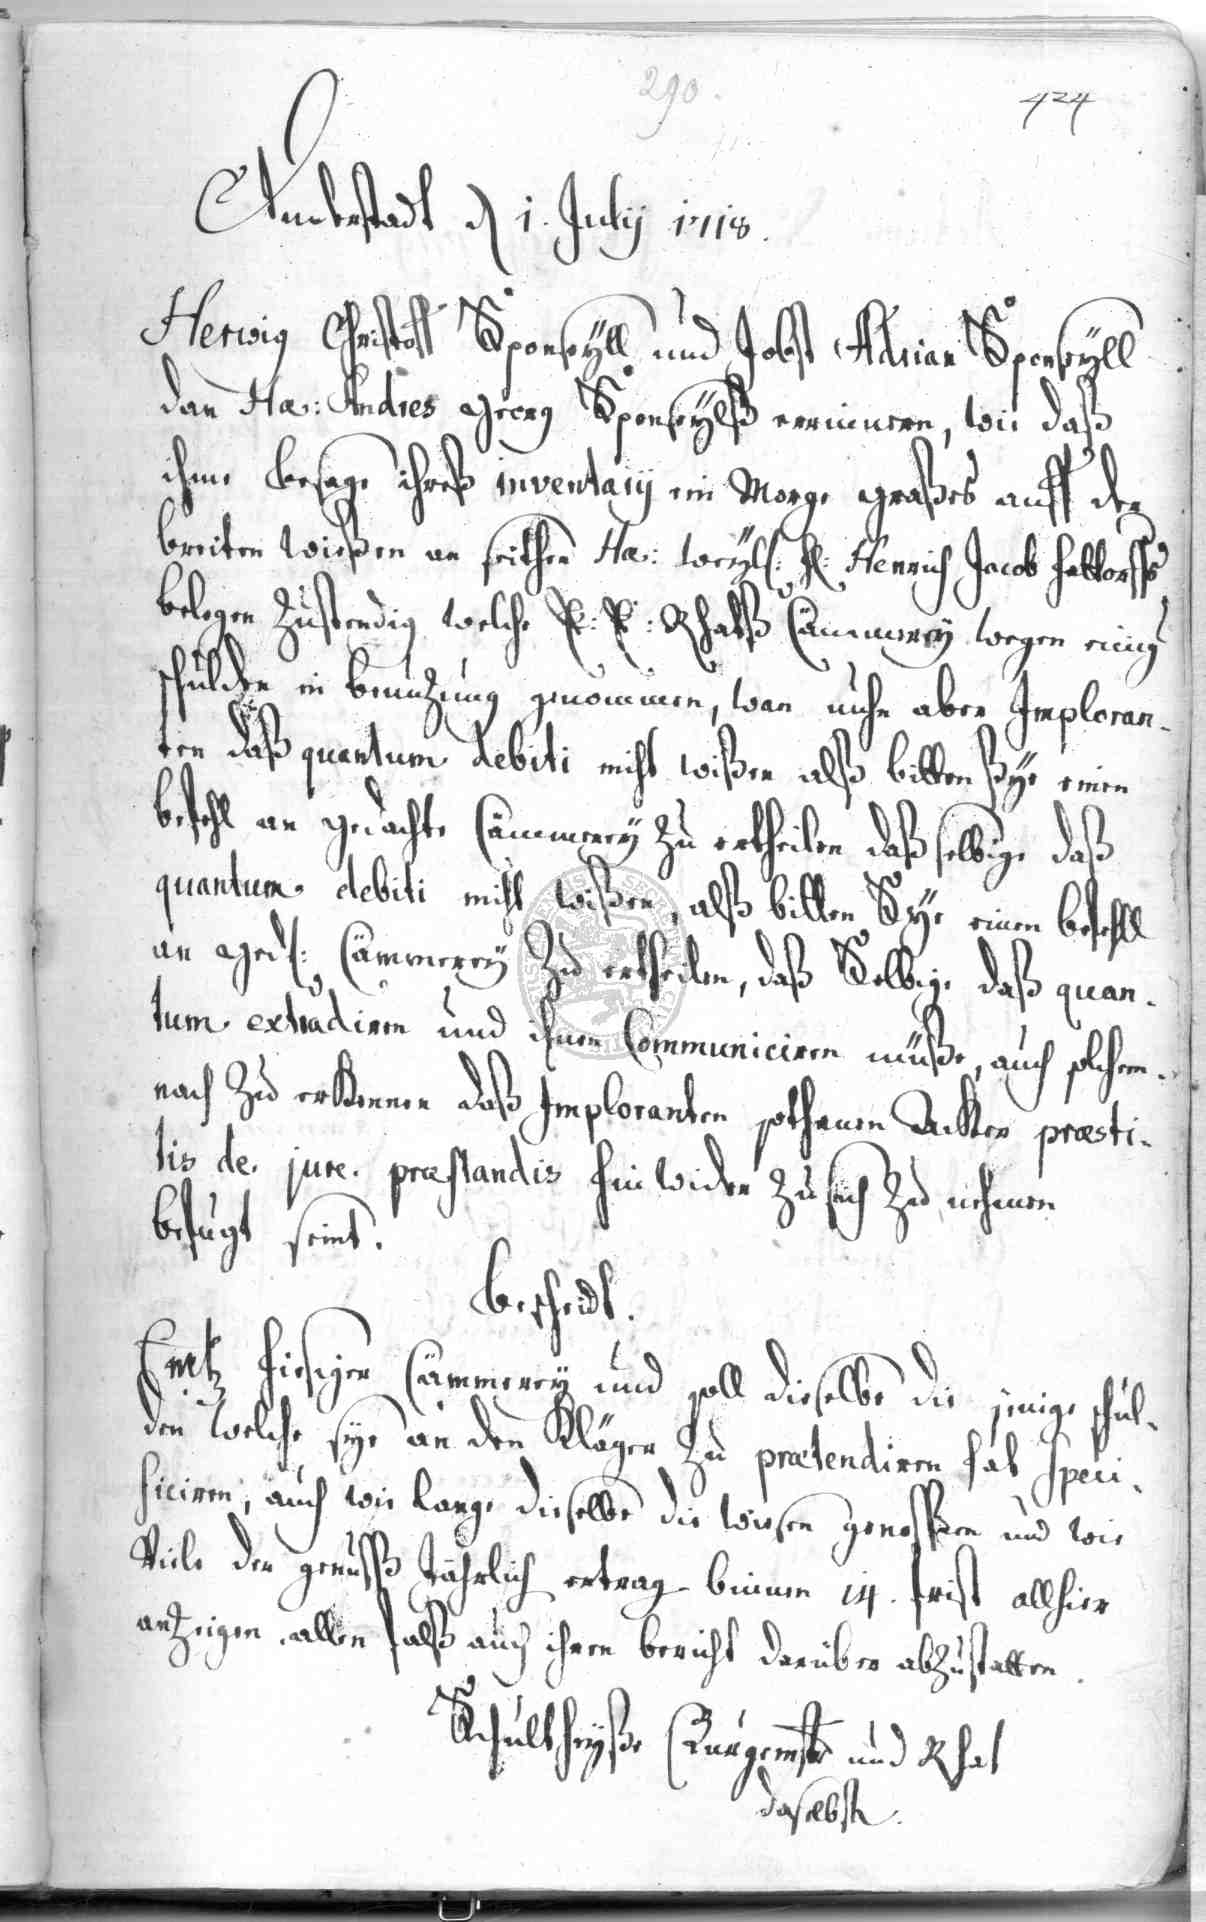 290.
424
Duderstadt d 1. July 1718.
Herwig Christoff Sponseyll und Jobst Adrian Sponseyll
dan Hæ: Andres Georg Sponseylß erinnern, wie daß
ihme besage ihreß inventarij ein Morge graßes auff der
breiten wießen an seithen Hæ: weyl: H: Henrich Jacob
belegen zustendig welche E: E: Rhatß Cämmerey wegen einig
schulden in benutzung genommen, wan nuhn aber Imploran-
ten daß quantum debiti nicht wißen alß bitten sye einen
befehl an gedachte Cämmerey zu ertheilen daß selbige daß
quantum debiti nicht wißen, alß bitten Sye einen befehll
an ged: Cämmerey zu ertheilen, daß Selbige daß quan-
tum extradiren und ihnen Communiciren müße, auch solchem-
nach zu erkennen daß Imploranten sothanen Acker præsti-
tis de jure præstandis hinwider zu sich zu nehmen
befugt seint.
bescheidt.
hiesiger Cämmerey und soll dieselbe die jenige schul-
den welche sye an den Kläger zu prætendiren hat speci-
ficiren, auch wie lange dieselbe die wiesen genossen und wie
Viele der genuß Jährlich ertrag binnen 14. frist allhier
anzeigen allen falß auch ihren bericht darüber abzustatten.
Schultheyße Burgemstr und Rhat
daselbsten.